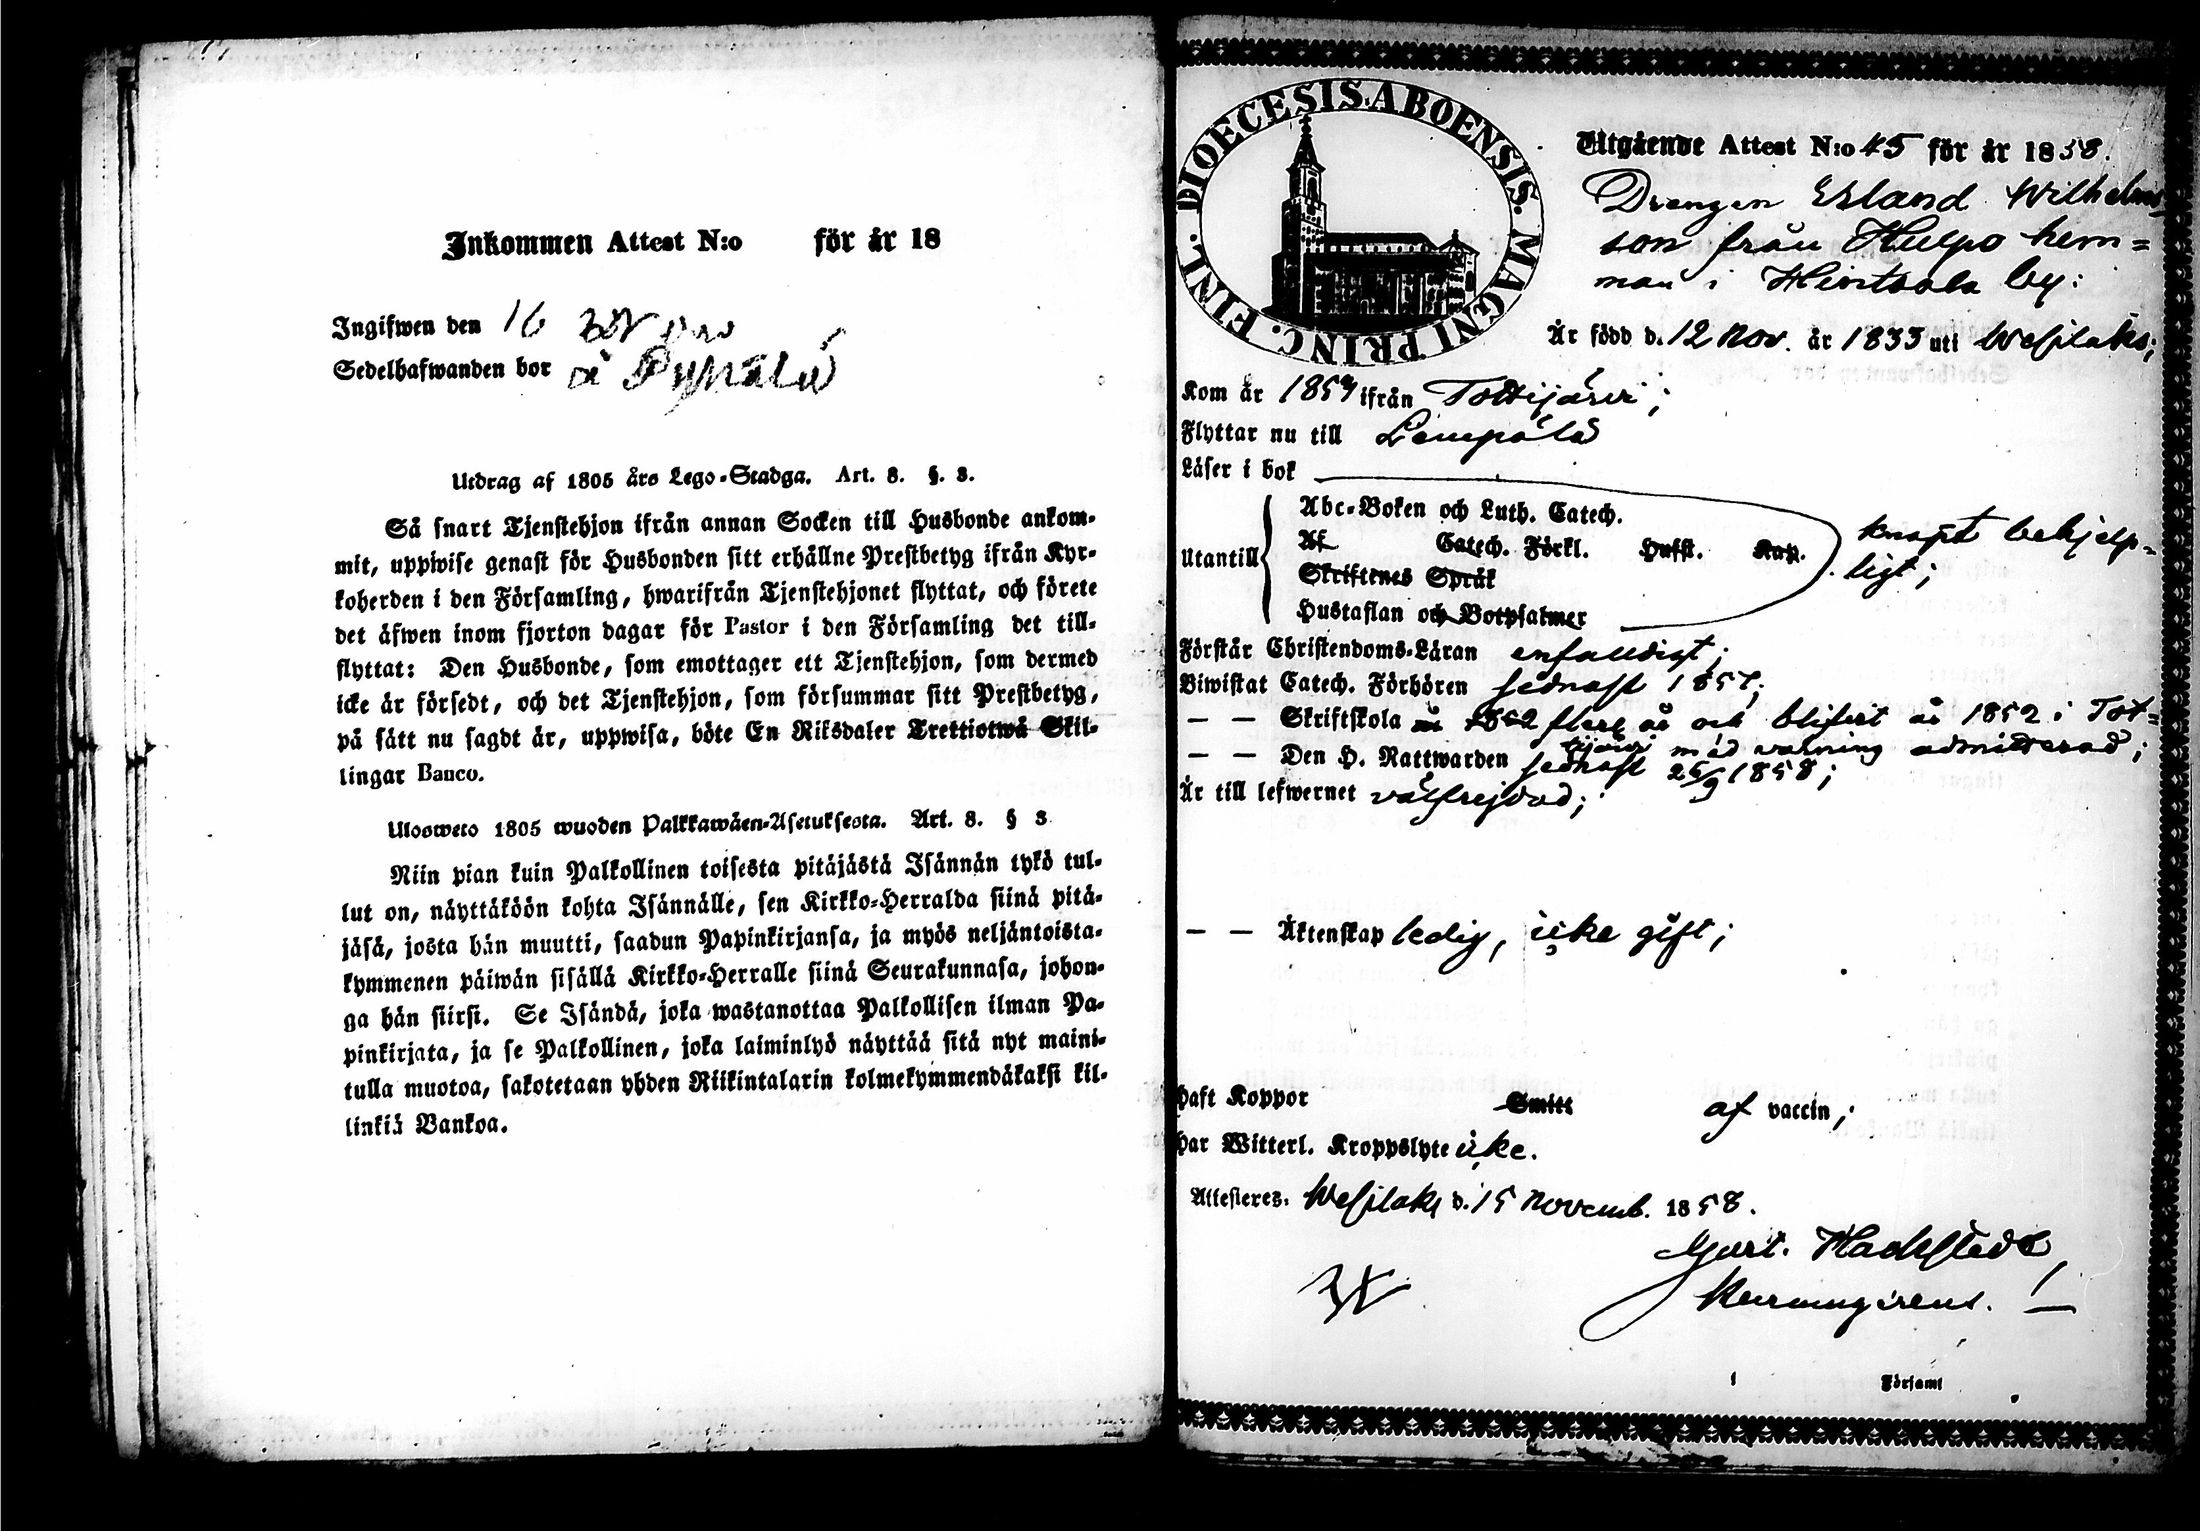 Inkommen Attest N:o för år 18
Ingifwen den 16
Sedelhafwanden bor å Pyhälä
Utdrag af 1805 års Lego-Stadga. Art. 8. §. 3.
Så snart Tjenstehjon ifrån annan Socken till Husbonde ankom-
mit, uppwise genast för Husbonden sitt erhållne Prestbetyg ifrån Kyr-
koherden i den Församling, hwarifrån Tjenstehjonet flyttat, och förete
det äfwen inom fjorton dagar för Pastor i den Församling det till-
flyttat: Den Husbonde, som emottager ett Tjenstehjon, som dermed
icke är försedt, och det Tjenstehjon, som försummar sitt Prestbetyg,
på sätt nu sagdt är, uppwisa, böte En Riksdaler Trettiotwå Skil-
lingar Banco.
Ulosweto 1805 wuoden Palkkawäen-Asetuksesta. Art. 8. § 3
Niin pian kuin Palkollinen toisesta pitäjästä Isännän tykö tul-
lut on, näyttäköön kohta Isännälle, sen Kirkko-Herralda siinä pitä-
jäsä, josta hän muutti, saadun Papinkirjansa, ja myös neljäntoista-
kymmenen päiwän sisällä Kirkko-Herralle siinä Seurakunnasa, johon-
ga hän siirsi. Se Isändä, joka wastanottaa Palkollisen ilman Pa-
pinkirjata, ja se Palkollinen, joka laiminlyö näyttää sitä nyt maini-
tulla muotoa, sakotetaan yhden Riikintalarin kolmekymmendäkaksi kil-
linkiä Bankoa.
DIOECESIS ABOENSIS. MAGNI PRINC. FINL.
Utgående Attest N:o 45 för år 1858.
Drengen Erland Wilhelms-
son från Hulpo hem=
man i Hinsala by:
Är född d. 12 Nov. år 1833 uti Wesilaks;
Kom år 1857 ifrån Tottijärvi;
Flyttar nu till Lempälä
Läser i bok
Abc-Boken och Luth. Catech.
Utantill Af Catech. Förkl. Hufst. Kap. knapt behjelp=
Skriftenes Språk ligt;
Hustaflan och Botpsalmer
Förstår Christendoms-Läran enfaldigt;
Biwistat Catech. Förhören sednast 1858;
— — Skriftskola år 1852 flere år och blifvit år 1852 i Tot=
tijärvi med varning admitterad;
— — Den H. Nattwarden sednast 26/9 1858;
Är till lefwernet välfrejdad;
— — Äktenskap ledig, icke gift;
haft Koppor Smitt af vaccin;
har Witterl. Kroppslyte icke.
Attesteres: Wesilaks d. 15 Novemb. 1858.
Gust. Hackstedt
Församl